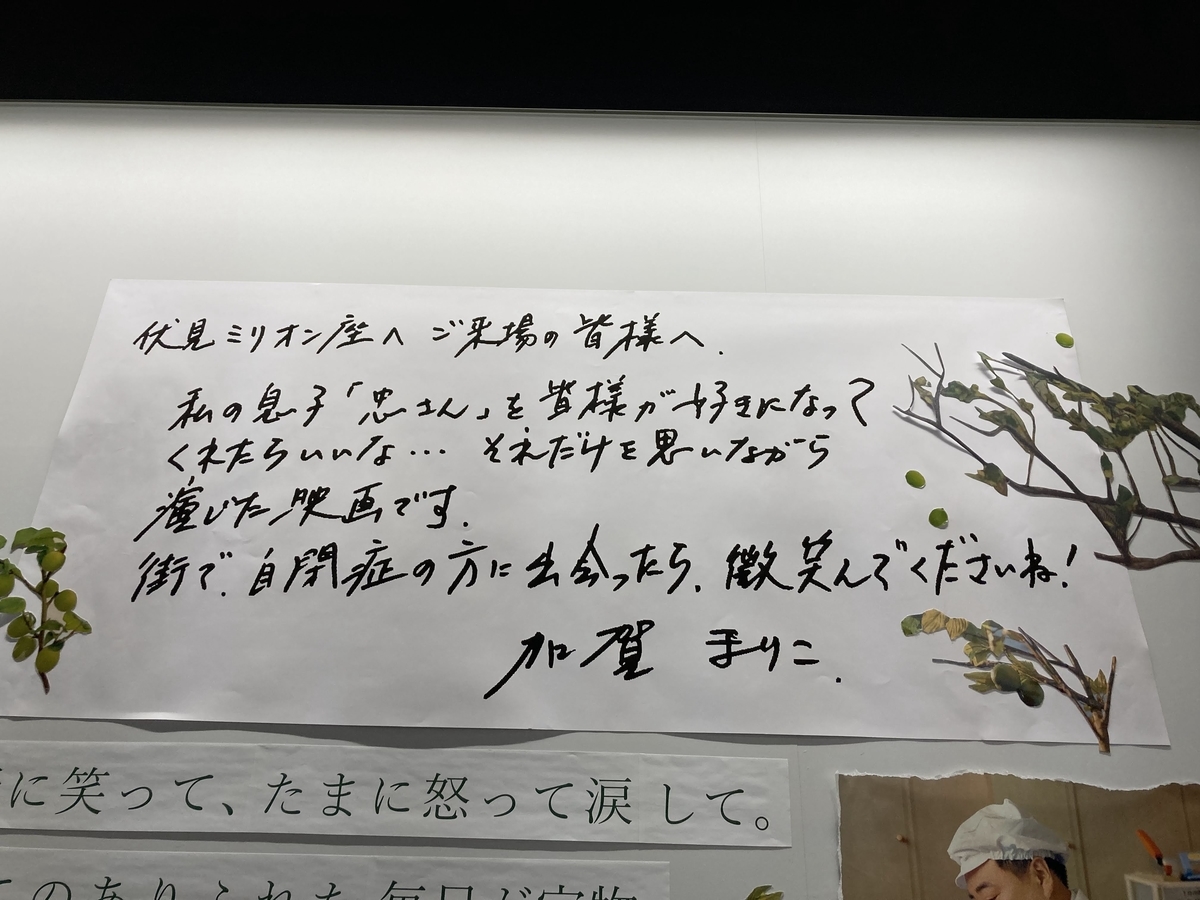 伏見ミリオン座へ ご来場の皆様へ.
私の息子「忠さん」を皆様が好きになって
くれたらいいな… それだけを思いながら
演じた映画です.
街で.自閉症の方に出会ったら.微笑んでくださいね!
加賀 まりこ.
に笑って、たまに怒って涙して。
このありふれた毎日が宝物